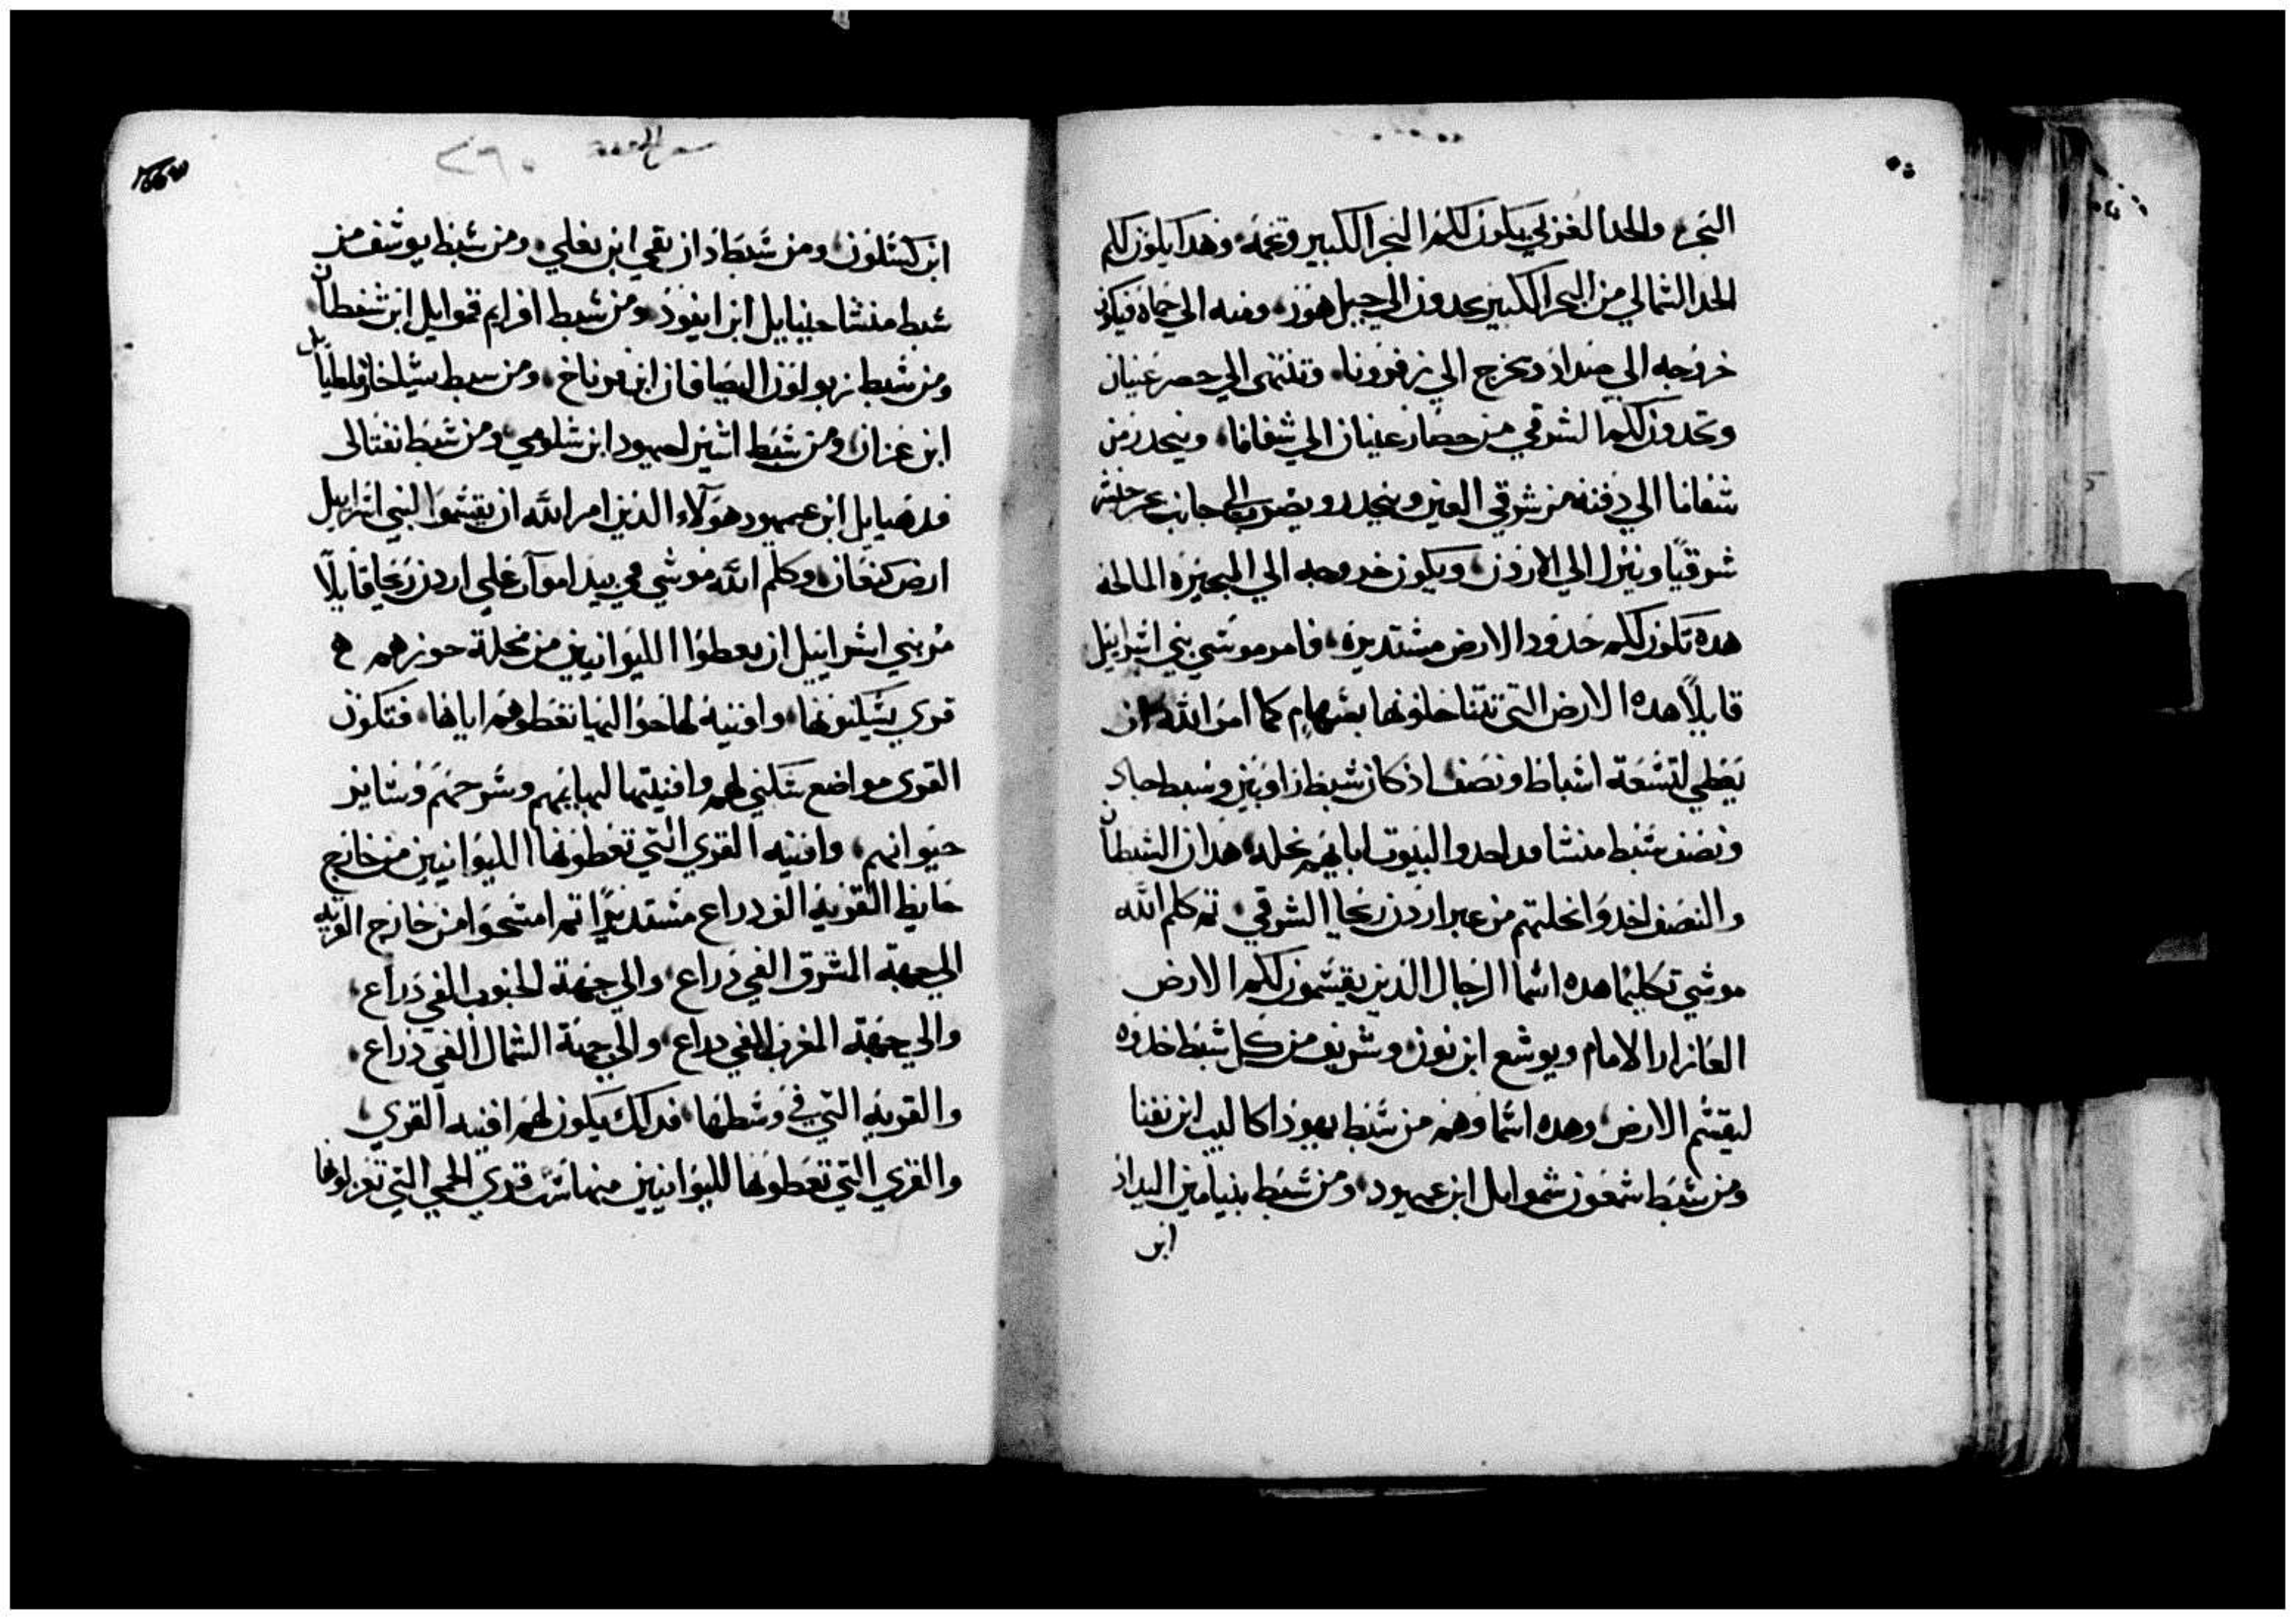 البحر والحد الغربي يكون لكم البحر الكبير وتخمه وهدا يكون لكم
الحد الشمالي من البحر الكبير تحدون الي جبل هور ومنه الي حماه فيكون
خروجه الي صداد ويخرج الي زفرونا وتنتهى الي حصر عينان
وتحدون لكم الشرقي من حصار عينان الي شفاما وينحدر من
شفاما الي دفنه من شرقي العين وينحدر ويضرب الي جانب بحر
شرقيًا وينزل الي الاردن ويكون خروجه الي البحيره المالحه
هده تكون لكم حدود الارض مستديره فامر موسي بني اسراييل
قايلًا هده الارض التي تتناحلونها بسهام كما امر الله ان
يعطي لتسعة اسباط ونصف اذ كان سبط راوبين وسبط جاد
ونصف سبط منشا قد اخدوا لبيوت ابايهم نحله هدان السبطان
والنصف اخدوا نحلتهم من عبر اردن ريحا الشرقي تم كلم الله
موسي تكليمًا هده اسما الرجال الذين يقسمون لكم الارض
العازار الامام ويوشع ابن نون وشريف من كل سبط خدوه
ليقسم الارض وهده اسماوهم من سبط يهودا كالب ابن يفنا
ومن سبط شمعون شموايل ابن عميهود ومن سبط بنيامين اليداد
ابن
٢٦٠
ابن كسلون ومن سبط دان بقي ابن يغلي ومن سبط يوسف من
سبط منشا حنيايل ابن ايفود ومن سبط افرايم قموايل ابن شفطان
ومن سبط زبولون اليصافان ابن فرناخ ومن سبط يساخر فلطيايل
ابن عزان ومن سبط اشير احيهود ابن شلومي ومن سبط نفتالى
فدهيايل ابن عميهود هولاء الذين امر الله ان يقسموا لبني اسراييل
ارض كنعان وكلم الله موسي في بيدا مواب علي اردن ريحا قايلًا
مر بني اسراييل ان يعطوا الليوانيين من نحلة حوزهم
قري يسكنونها وافنيه لها حواليها تعطوهم اياها فتكون
القرى مواضع سكني لهم وافنيتها لبهايمهم وسرحهم وساير
حيوانهم وافنيه القري التي تعطونها الليوانيين من خارج
حايط القريه الف دراع مستديرًا تم امسحوا من خارج القريه
الي جهة المشرق الفي دراع والي جهة الجنوب الفي دراع
والي جهة المغرب الفي دراع والي جهة الشمال الفي دراع
والقريه التي في وسطها فدلك يكون لهم افنيه القري
والقري التي تعطونها لليوانيين منها ست قري الحمي التي تعزلونها